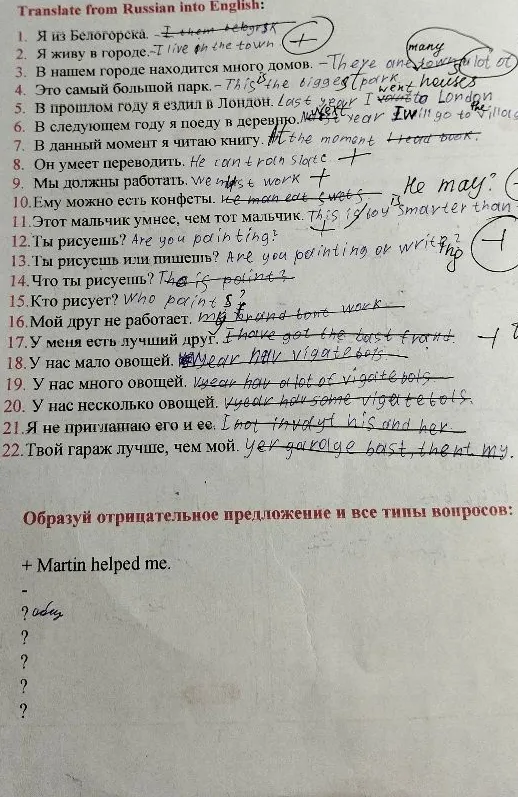 Translate from Russian into English:
1. Я из Белогорска. - I them belgrsk +
2. Я живу в городе. - I live in the town
many
3. В нашем городе находится много домов. - There are town a lot of
houses
4. Это самый большой парк. - This is the biggest park
went
5. В прошлом году я ездил в Лондон. Last year I to London
6. В следующем году я поеду в деревню. Next year I will go to the village
7. В данный момент я читаю книгу. At the moment I read book.
8. Он умеет переводить. He can translate +
9. Мы должны работать. We must work +
10. Ему можно есть конфеты. He man eat swets He may?
11. Этот мальчик умнее, чем тот мальчик. This is boy is smarter than
12. Ты рисуешь? Are you painting? +
13. Ты рисуешь или пишешь? Are you painting or writing? +
14. Что ты рисуешь? The is paint?
15. Кто рисует? Who paints?
16. Мой друг не работает. my frand dont work
17. У меня есть лучший друг. I have got the bast frand. +
18. У нас мало овощей. year hav vigatebols
19. У нас много овощей. vyear hav a lot of vigatebols
20. У нас несколько овощей. vyear hav some vigatebols.
21. Я не приглашаю его и ее. I not invayt his and her.
22. Твой гараж лучше, чем мой. yer garage bast, thent my.
Образуй отрицательное предложение и все типы вопросов:
+ Martin helped me.
-
? общ
?
?
?
?